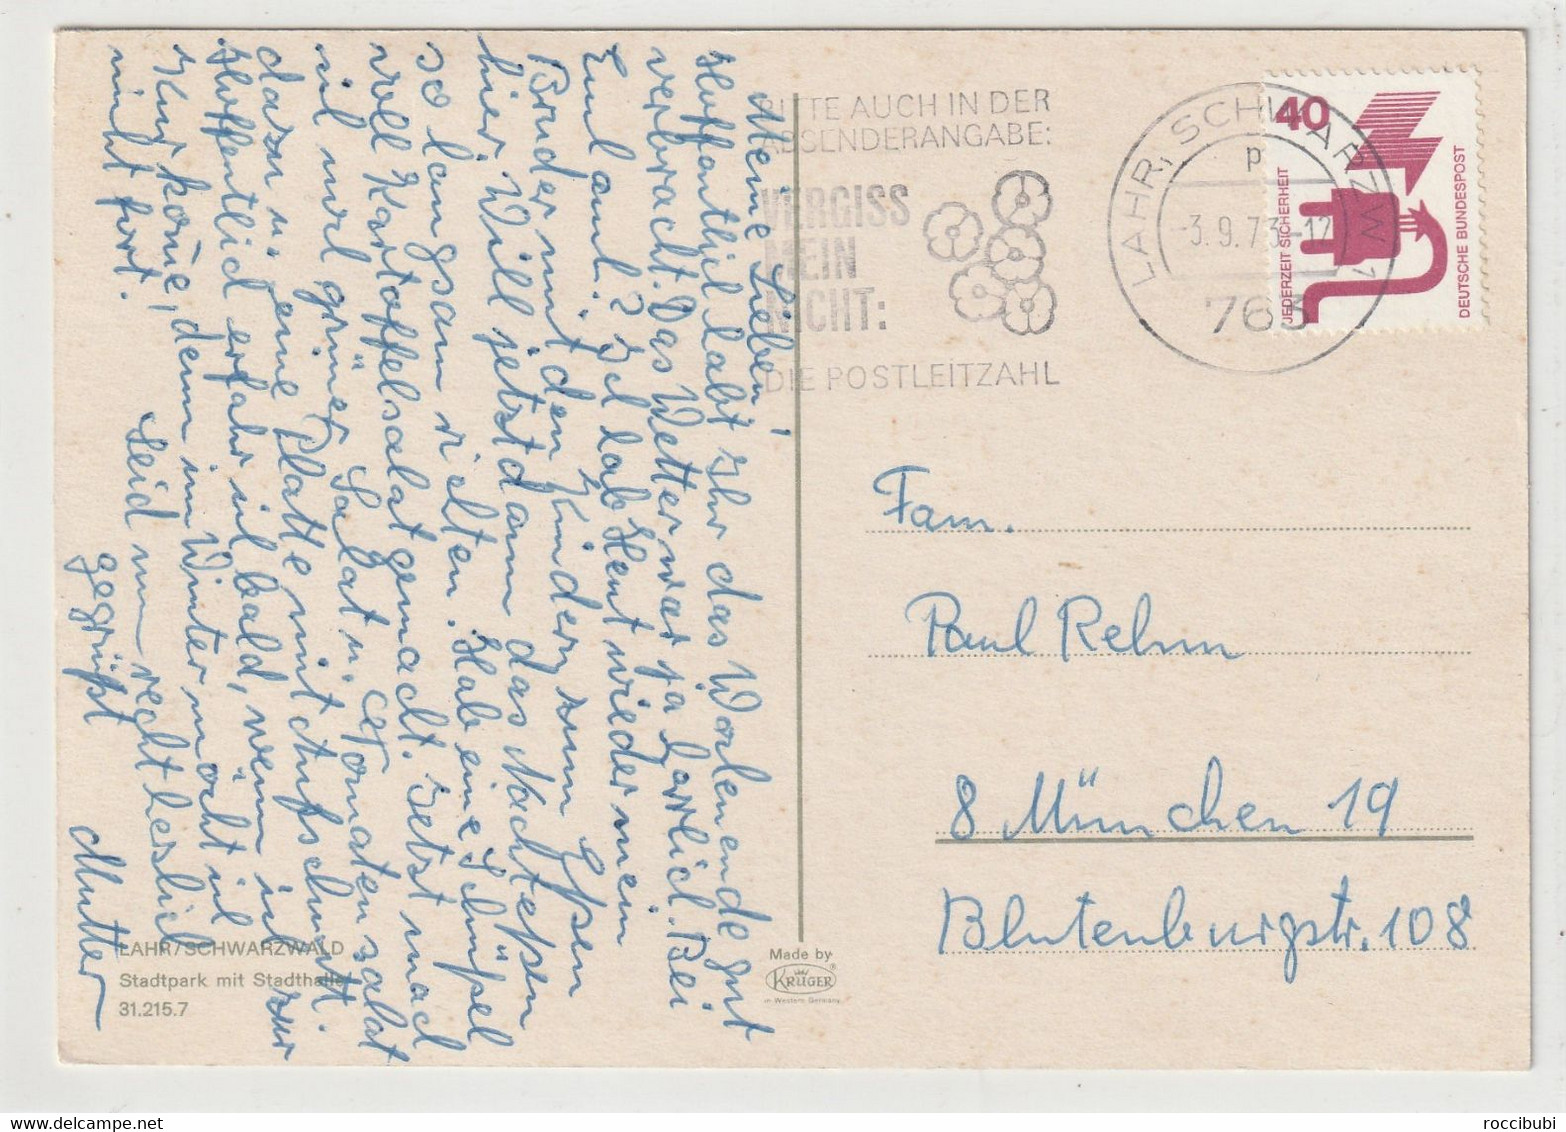 Meine Lieben!
Hoffentlich labt Ihr das Wochenende gut
verbracht. Das Wetter war ja harrlich. Bei
Euch auch? Ich hab Heut wieder mein
Bruder mit den Kindern zum Essen
hier. Will jetzt dann das Nachteßen
so langsam richten. Hab eine Schüßel
voll Kartoffelsalat gemacht. Jetzt mach
ich noch grüner Salat u. Tomatensalat
dazu u. eine Platte mit Aufschnitt.
Hoffentlich erfahr ich bald, wenn ich zur
Kur kome, denn im Winter möcht ich
nicht fort.
Seid nun recht herzlich
gegrüßt
Mutter
LAHR/SCHWARZWALD
Stadtpark mit Stadthalle
31.215.7
Made by
KRÜGER
in Western Germany
BITTE AUCH IN DER
ABSENDERANGABE:
VERGISS
MEIN
NICHT:
DIE POSTLEITZAHL
LAHR, SCHWARZW 1
p
-3.9.73-12
763
40
JEDERZEIT SICHERHEIT
DEUTSCHE BUNDESPOST
Fam.
Paul Rehm
8 München 19
Blutenburgstr. 108
roccibubi